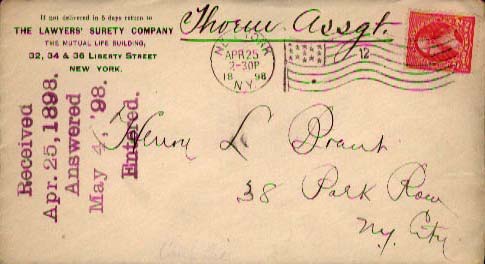 If not delivered in 5 days return to
THE LAWYERS' SURETY COMPANY
THE MUTUAL LIFE BUILDING,
32, 34 & 36 LIBERTY STREET
NEW YORK.
Thorne Assgt.
NEW YORK
APR 25
2-30P
1898
N.Y.
12
Received
Apr. 25, 1898.
Answered
May 4, '98.
Entered.
Henry L Brant
38 Park Row
Ny. City